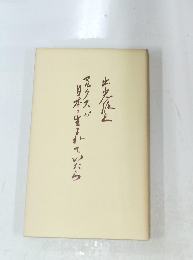 出光佐三
マルクスが
日本に生まれていたら